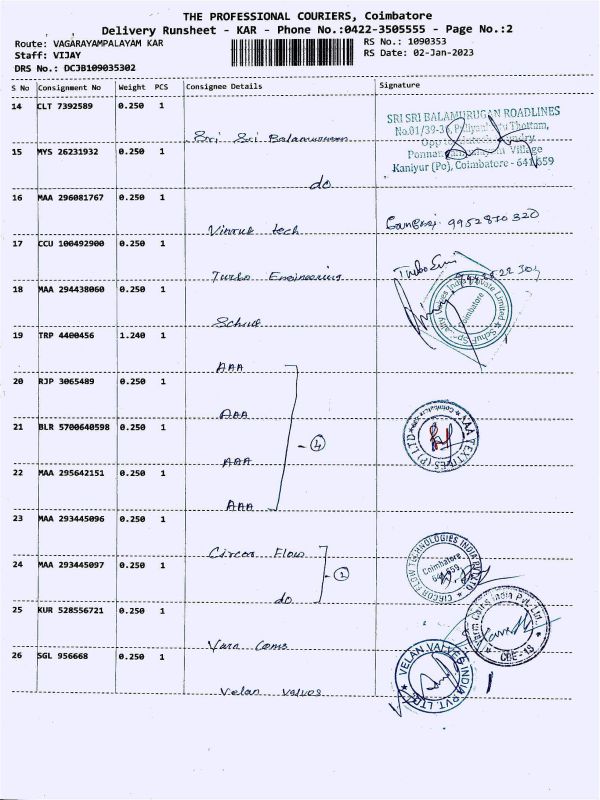 THE PROFESSIONAL COURIERS, Coimbatore
Delivery Runsheet - KAR - Phone No.:0422-3505555 - Page No.:2
Route: VAGARAYAMPALAYAM KAR
RS No.: 1090353
Staff: VIJAY
RS Date: 02-Jan-2023
DRS No.: DCJB109035302
S No Consignment No Weight PCS Consignee Details Signature
14 CLT 7392589 0.250 1
Sri Sri Balamurugan
SRI SRI BALAMURUGAN ROADLINES
No.01/39-3 Thottam,
Village
Kaniyur (Po), Coimbatore - 641 659
15 MYS 26231932 0.250 1
do
16 MAA 296081767 0.250 1
tech
9952870320
17 CCU 100492900 0.250 1
Turbo Engineering
18 MAA 294438060 0.250 1
Schuf
Schuf Speciality Valves India Private Limited
Coimbatore
19 TRP 4400456 1.240 1
AAA
20 RJP 3065489 0.250 1
AAA
21 BLR 5700640598 0.250 1
AAA
4
AAA TEXTILES (P) LTD
Coimbatore
22 MAA 295642151 0.250 1
AAA
23 MAA 293445096 0.250 1
Circor Flow
24 MAA 293445097 0.250 1
do
2
CIRCOR FLOW TECHNOLOGIES INDIA PVT LTD
Coimbatore
641 659
25 KUR 528556721 0.250 1
Varn Coms
India Pvt. Ltd.
26 SGL 956668 0.250 1
Velan Valves
VELAN VALVES INDIA PVT. LTD.